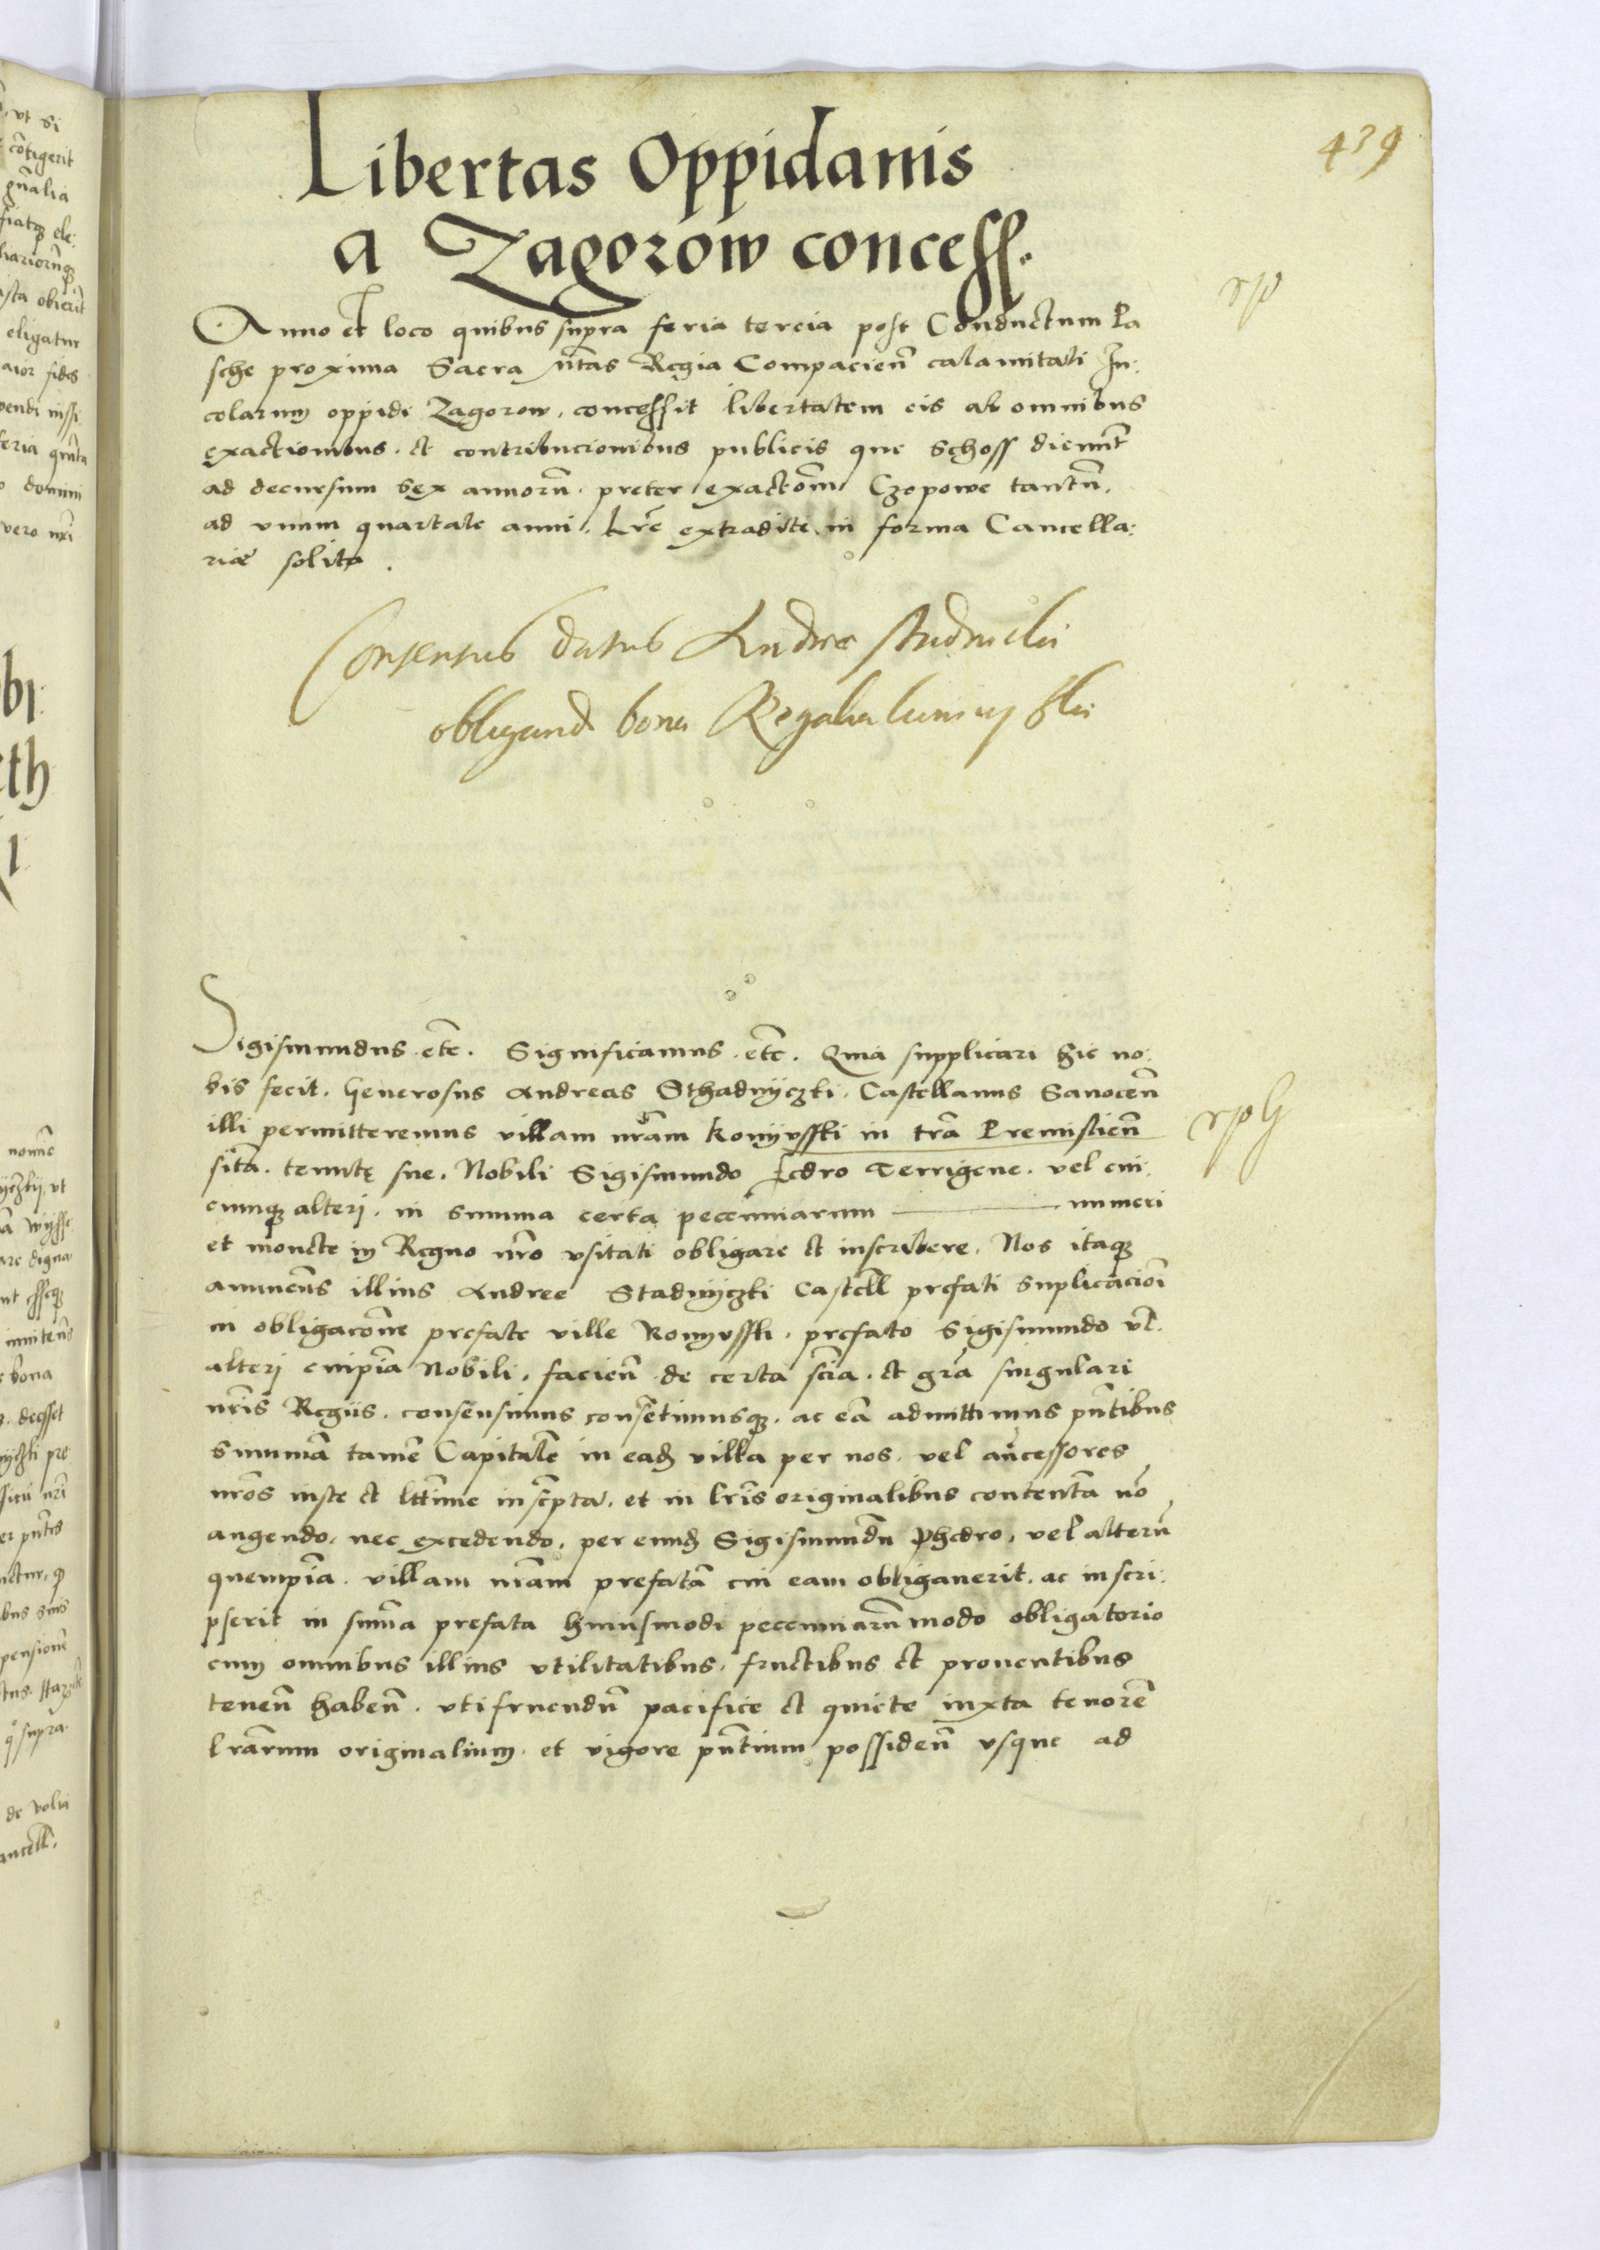 439
Libertas Oppidanis
a Zagorow concess.
Anno et loco quibus supra feria tercia post Conductum Pa
sche proxima Sacra mtas Regia Compacien calamitati In:
colarum oppidi Zagorow, concessit libertatem eis ab omnibus
exactionibus. et contribucionibus publicis que Schoss dicunt
ad decursum sex annorum. preter exactom Czopowe tantum.
ad unum quartale anni. Lre extradite in forma Cancella:
riae solita.
Consensus datus Andree Stadnicki
obligand bona Regalia
Sigismundus. etc. Significamus. etc. Quia supplicari hic no:
bis fecit. Generosus Andreas Sthadnyczki. Castellanus Sanocen
illi permitteremus villam nram Konyvsski in tra Premislien
sita. tenute sue. Nobili Sigismundo Fedro Terrigene. vel cui
cumque alteri. in summa certa peccuniarum numeri
et monete in Regno nro usitati obligare et inscribere. Nos itaque
annuens illius Andree Stadnyczki Castell prefati suplicacioni
in obligacone prefate ville Konyvsski. prefato Sigismundo vel
alteri cuipia Nobili. facien de certa scia. et gra singulari
nris Regiis. consensimus consetimusque. ac ea admittimus pntibus
summa tamen Capitale in eadem villa per nos. vel ancessores
nros iuste et lttime inscpta. et in lris originalibus contenta no
augendo. nec excedendo. per eundem Sigismundu Phedro. vel alteru
quempia. villam nram prefata cui eam obligauerit. ac inscri:
pserit in summa prefata huiusmodi peccuniarum modo obligatorio
cum omnibus illius utilitatibus. fructibus et prouentibus
tenen haben. utifruendum pacifice et quiete iuxta tenore
lrarum originalium. et vigore pntium possiden usque ad